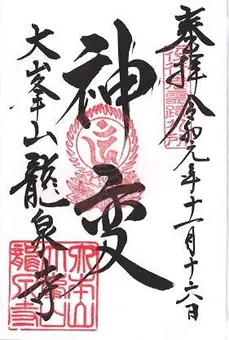 奉拝 令和元年十一月十六日
神変
大峯山 龍泉寺